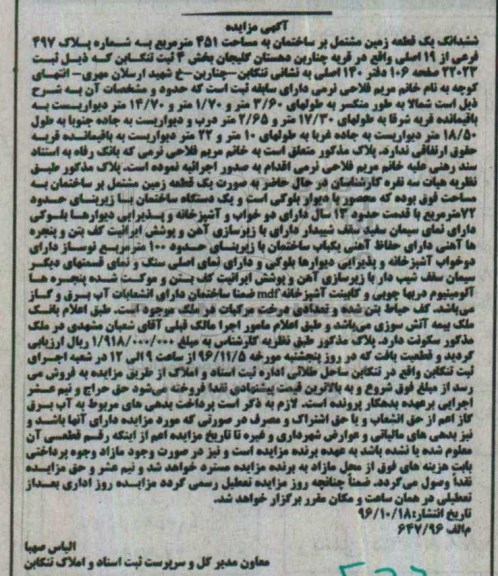 آگهی مزایده
ششدانگ یک قطعه زمین مشتمل بر ساختمان به مساحت ۴۵۱ مترمربع به شماره پلاک ۴۹۷
فرعی از ۱۹ اصلی واقع در قریه چناربن دهستان گلیجان بخش ۴ ثبت تنکابن که ذیل ثبت
۲۲۰۲۳ صفحه ۱۰۶ دفتر ۱۳۰ اصلی به نشانی تنکابن-چناربن-خ شهید ارسلان مهری- انتهای
کوچه به نام خانم مریم فلاحی نرمی دارای سابقه ثبت است که حدود و مشخصات آن به شرح
ذیل است شمالا به طور منکسر به طولهای ۳/۶۰ متر و ۱/۷۰ متر و ۱۴/۷۰ متر دیواریست به
باقیمانده قریه شرقا به طولهای ۱۷/۳۰ متر و ۲/۶۵ متر درب و دیواریست به جاده جنوبا به طول
۱۸/۵۰ متر دیواریست به جاده غربا به طولهای ۱۰ متر و ۲۲ متر دیواریست به باقیمانده قریه
حقوق ارتفاقی ندارد. پلاک مذکور متعلق است به خانم مریم فلاحی نرمی که بانک رفاه به استناد
سند رهنی علیه خانم مریم فلاحی نرمی اقدام به صدور اجرائیه نموده است. پلاک مذکور طبق
نظریه هیات سه نفره کارشناسان در حال حاضر به صورت یک قطعه زمین مشتمل بر ساختمان به
مساحت فوق بوده که محصور با دیوار بلوکی است و یک دستگاه ساختمان با زیربنای حدود
۷۲مترمربع با قدمت حدود ۱۳ سال دارای دو خواب و آشپزخانه و پذیرایی دیوارها بلوکی
دارای نمای سیمان سفید سقف شیبدار دارای با زیرسازی آهن و پوشش ایرانیت کف بتن و پنجره
ها آهنی دارای حفاظ آهنی یکباب ساختمان با زیربنای حدود ۱۰۰ مترمربع نوساز دارای
دوخواب آشپزخانه و پذیرایی دیوارها بلوکی و دارای نمای اصلی سنگ و نمای قسمتهای دیگر
سیمان سقف شیب دار با زیرسازی آهن و پوشش ایرانیت کف بتن و موکت شده پنجره ها
آلومینیوم دربها چوبی و کابینت آشپزخانه mdf ضمنا ساختمان دارای انشعابات آب برق و گاز
می‌باشد. کف حیاط بتن شده و تعدادی درخت مرکبات در ملک موجود است. طبق اعلام بانک
ملک بیمه آتش سوزی می‌باشد و طبق اعلام مامور اجرا مالک قبلی آقای شعبان مشهدی در ملک
مذکور سکونت دارد. پلاک مذکور طبق نظریه کارشناس به مبلغ ۱/۹۱۸/۰۰۰/۰۰۰ ریال ارزیابی
گردید و قطعیت یافت که در روز پنجشنبه مورخه ۹۶/۱۱/۵ از ساعت ۹ الی ۱۲ در شعبه اجرای
ثبت تنکابن واقع در تنکابن ساحل طلائی اداره ثبت اسناد و املاک از طریق مزایده به فروش می
رسد از مبلغ فوق شروع و به بالاترین قیمت پیشنهادی نقدا فروخته می‌شود حق حراج و نیم عشر
اجرایی برعهده بدهکار پرونده است. لازم به ذکر است پرداخت بدهی های مربوط به آب برق
گاز اعم از حق انشعاب و یا حق اشتراک و مصرف در صورتی که مورد مزایده دارای آنها باشد و
نیز بدهی های مالیاتی و عوارض شهرداری و غیره تا تاریخ مزایده اعم از اینکه رقم قطعی آن
معلوم شده یا نشده باشد به عهده برنده مزایده است و نیز در صورت وجود مازاد وجوه پرداختی
بابت هزینه های فوق از محل مازاد به برنده مزایده مسترد خواهد شد و نیم عشر و حق مزایده
نقدا وصول می‌گردد. ضمناً چنانچه روز مزایده تعطیل رسمی گردد مزایده روز اداری بعداز
تعطیلی در همان ساعت و مکان مقرر برگزار خواهد شد.
تاریخ انتشار: ۹۶/۱۰/۱۸
م‌الف ۶۴۷/۹۶
الیاس صهبا
معاون مدیر کل و سرپرست ثبت اسناد و املاک تنکابن